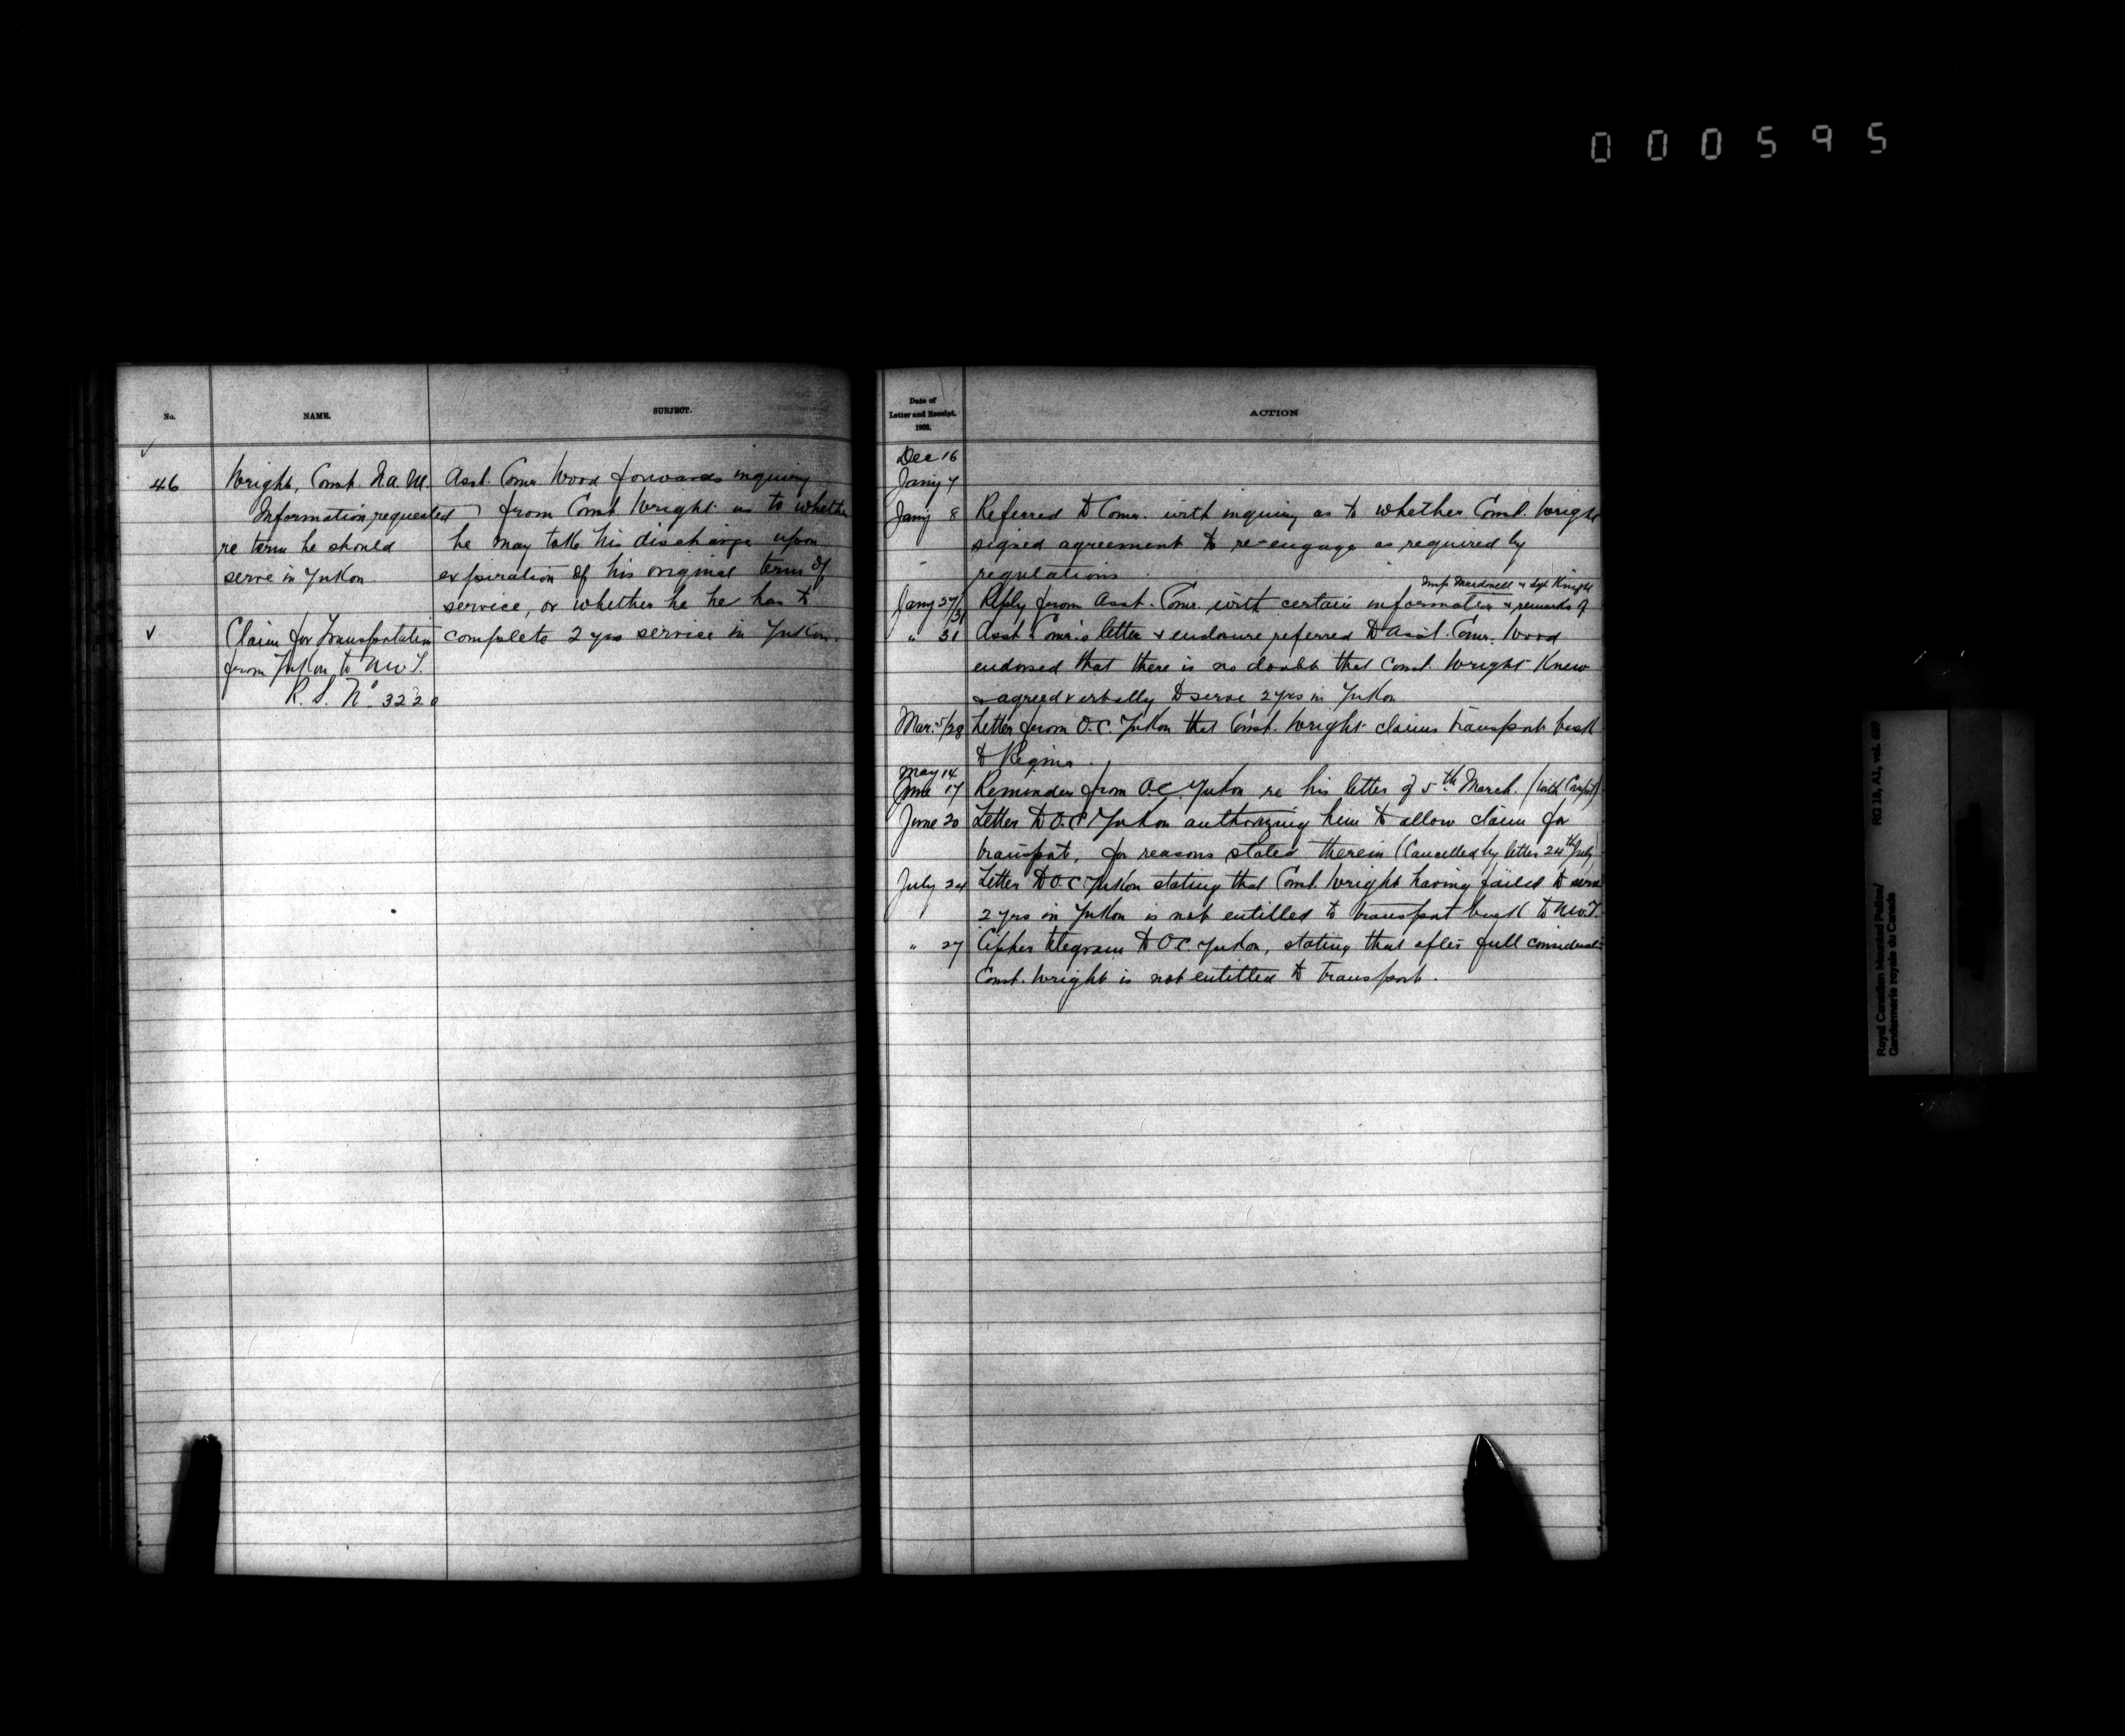 000595
No.
NAME.
SUBJECT.
46
Wright, Const. N.A.M.
Information requested
re term he should
serve in Yukon.
Claim for Transportation
from Yukon to N.W.T.
R.S. No. 3220
Asst. Comr. Wood forwards inquiry
from Const. Wright as to whether
he may take his discharge upon
expiration of his original term of
service, or whether he he has to
complete 2 yrs service in Yukon.
Date of
Letter and Receipt.
1903.
ACTION
Dec 16
Jany 7
Jany 8 Referred to Comr. with inquiry as to whether Const. Wright
signed agreement to re-engage as required by
regulations.
Insp. & Sgt. Knight
Jany 27/31 Reply from Asst. Comr. with certain information & remarks of
" 31 Asst. Comr.'s letter & enclosure referred to Asst. Comr. Wood
endorsed that there is no doubt that Const. Wright knew
& agreed verbally to serve 2 yrs in Yukon
Mar. 5/28 Letter from O.C. Yukon that Const. Wright claims transport back
to Regina.
May 14
June 17 Reminder from O.C. Yukon re his letter of 5th March.
June 20 Letter to O.C. Yukon authorizing him to allow claim for
transport, for reasons stated therein (Cancelled by letter 24th July)
July 24 Letter to O.C. Yukon stating that Const. Wright having failed to serve
2 yrs in Yukon is not entitled to transport back to N.W.T.
" 27 Cipher telegram to O.C. Yukon, stating that after full considerati
Const. Wright is not entitled to transport.
RG 18, A1, vol.
Royal Canadian Mounted Police/
Gendarmerie royale du Canada